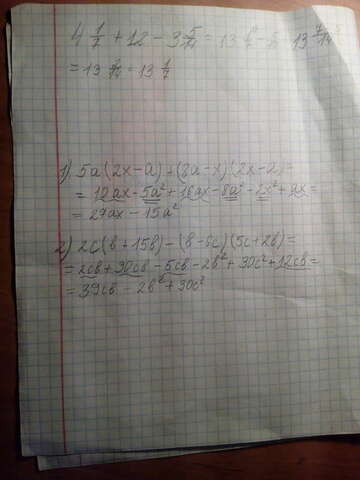 4 1/7 + 12 - 3 5/14 = 13
= 13 = 13 1/7
1) 5a(2x-a) + (8a-x)(2x-a) =
= 10ax - 5a² + 16ax - 8a² - 2x² + ax =
= 27ax - 15a²
2) 2c(b+15b) - (b-6c)(5c+2b) =
= 2cb + 30cb - 5cb - 2b² + 30c² + 12cb =
= 39cb - 2b² + 30c²